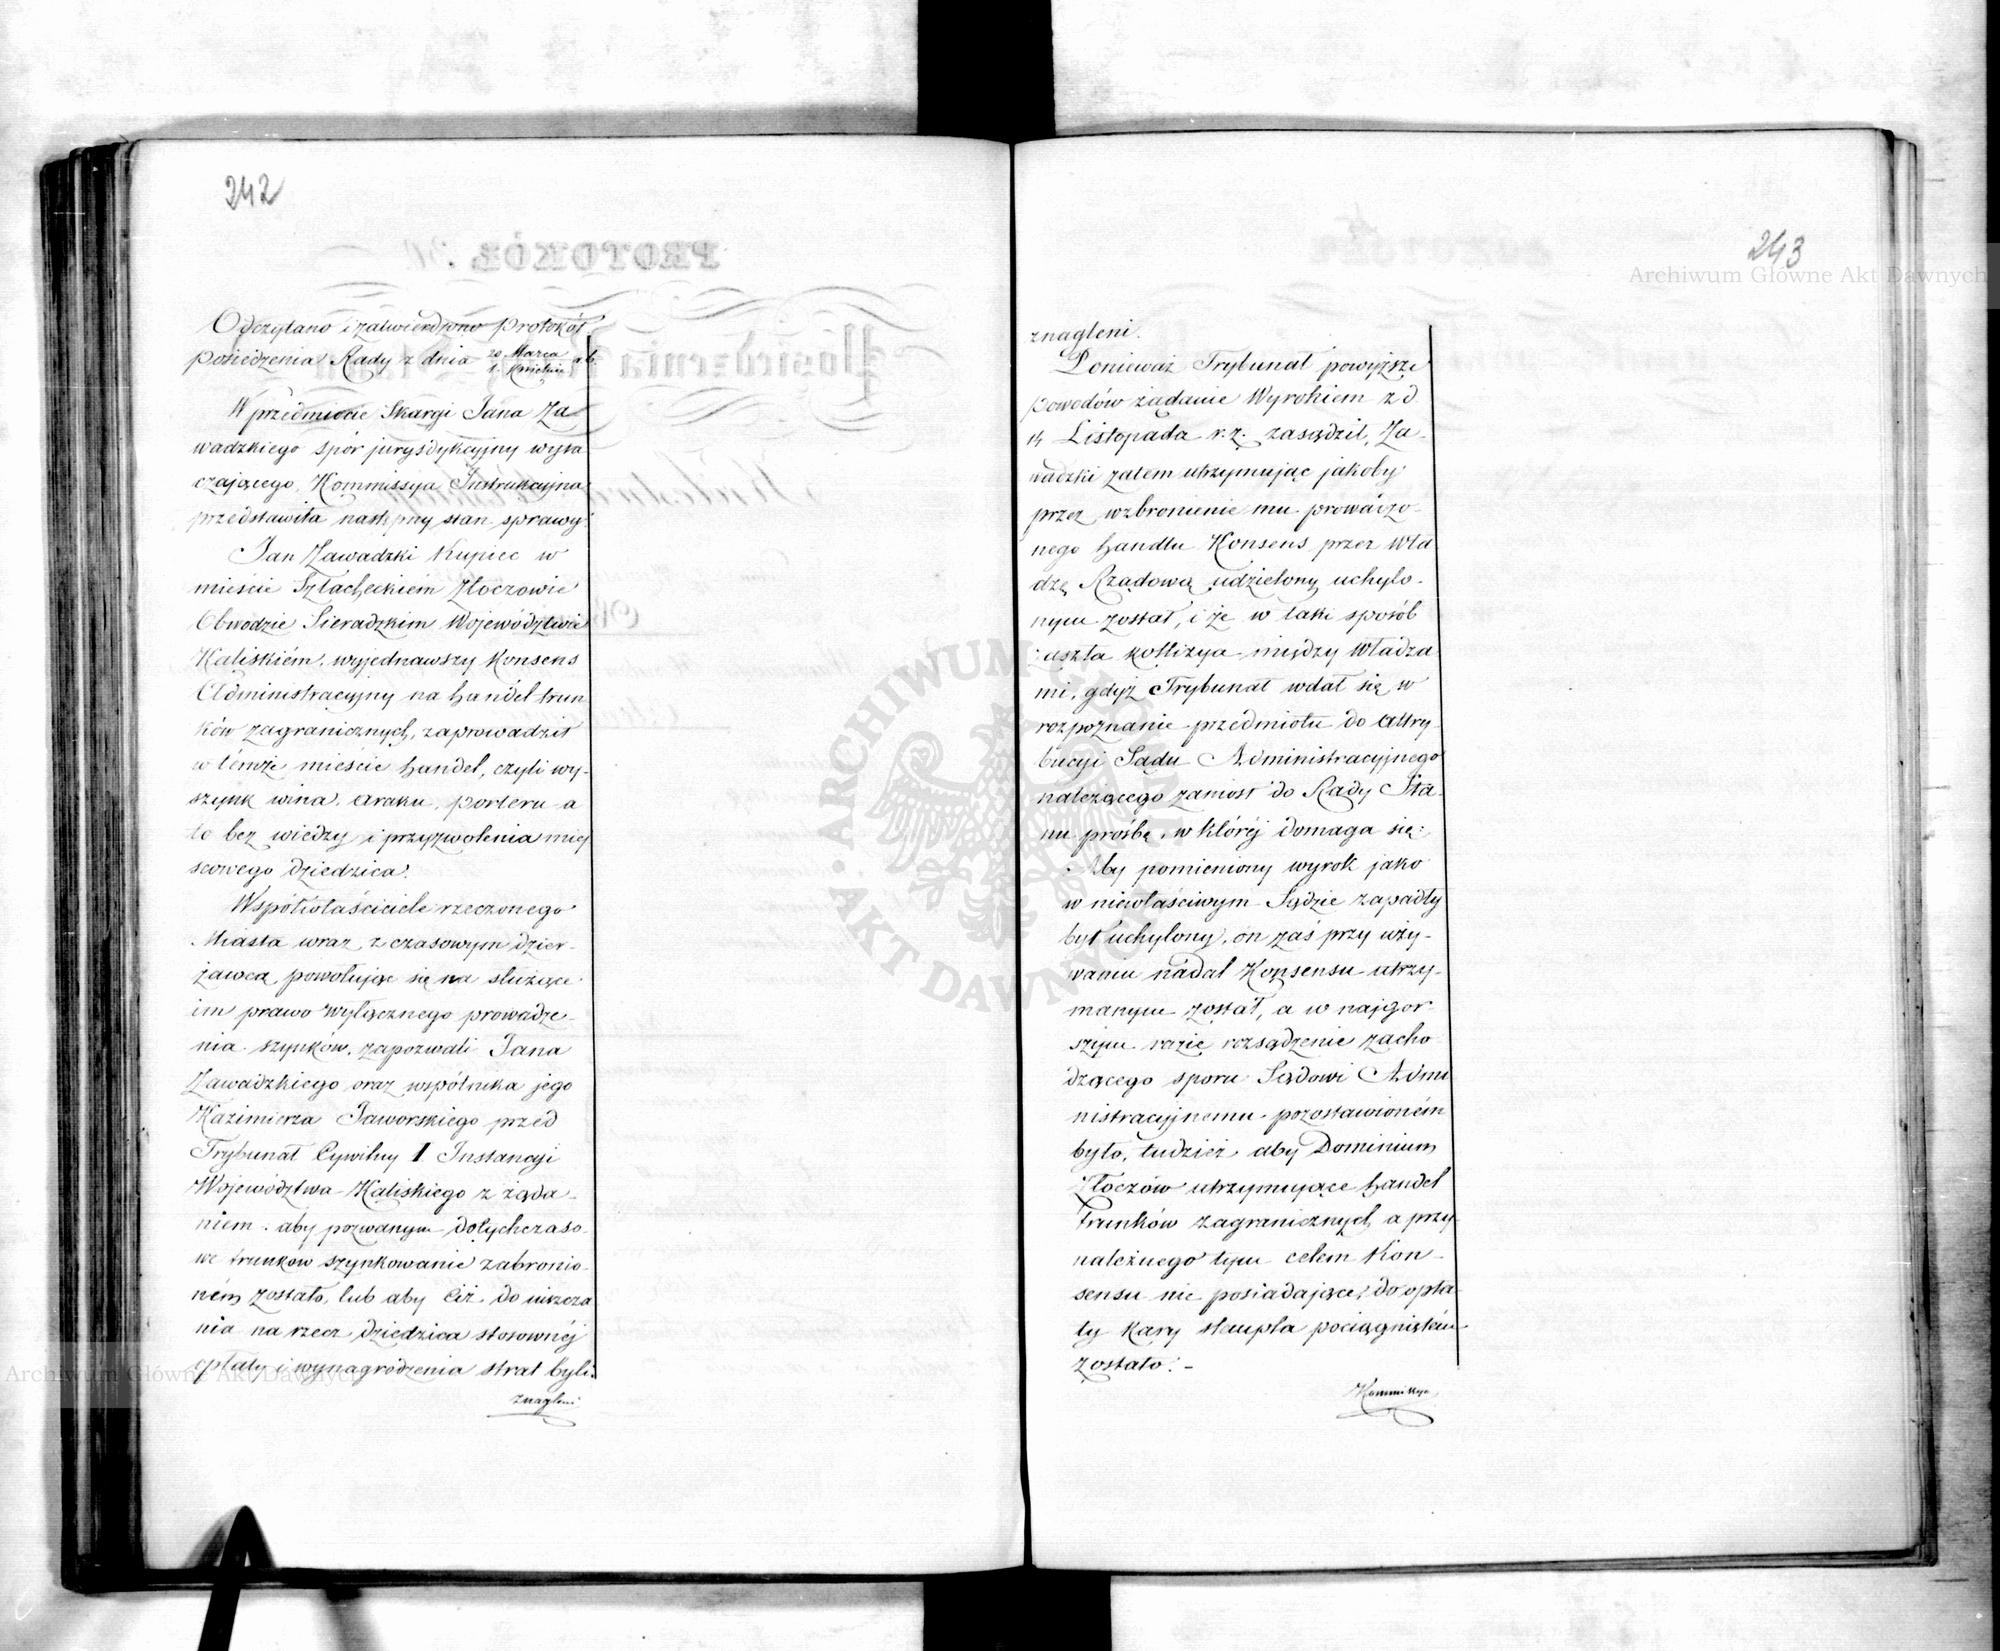 242
Odczytano i zatwierdzono Protokół
posiedzenia Rady z dnia 20 Marca / 1 Kwietnia a.b.
W przedmiocie Skargi Jana Za
wadzkiego spór jurysdykcyjny wyta
czającego, Kommissya Instrukcyjna
przedstawiła następny stan sprawy:
Jan Zawadzki Kupiec w
mieście Szlacheckiem Złoczowie
Obwodzie Sieradzkim Województwie
Kaliskiém, wyjednawszy Konsens
Administracyjny na handel trun
ków zagranicznych, zaprowadził
w témże mieście handel, czyli wy-
szynk wina, araku, porteru a
to bez wiedzy i przyzwolenia miej
scowego dziedzica.
Współwłaściciele rzeczonego
Miasta wraz z czasowym dzier-
żawcą, powołując się na służące
im prawo wyłącznego prowadze-
nia szynków, zapozwali Jana
Zawadzkiego oraz wspólnika jego
Kazimierza Jaworskiego przed
Trybunał Cywilny I Instancyi
Województwa Kaliskiego z żąda-
niem: aby pozwanym dotychczaso-
we trunków szynkowanie zabronio-
ném zostało, lub aby Ciż do uiszcza
nia na rzecz dziedzica stosownéj
opłaty i wynagrodzenia strat byli
znagleni
243
znagleni.
Ponieważ Trybunał powyższe
powodów żądanie Wyrokiem z d.
14 Listopada r. z. zasądził, Za-
wadzki zatem utrzymując jakoby
przez wzbronienie mu prowadzo-
nego handlu Konsens przez Wła
dzę Rządową udzielony uchylo-
nym został, i że w taki sposób
zaszła kollizya między Władza
mi, gdyż Trybunał wdał się w
rozpoznanie przedmiotu do attry
bucyi Sądu Administracyjnego
należącego zaniósł do Rady Sta-
nu prośbę, w któréj domaga się:
Aby pomieniony wyrok jako
w niewłaściwym Sądzie zapadły
był uchylony, on zaś przy uży-
waniu nadal Konsensu utrzy-
manym został, a w najgor-
szym razie rozsądzenie zacho
dzącego sporu Sądowi Admi
nistracyjnemu pozostawioném
było, tudzież aby Dominium
Złoczów utrzymujące handel
trunków zagranicznych a przy-
należnego tym celem Kon-
sensu nie posiadające, do opła-
ty kary stempla pociągniętém
zostało. -
Kommissya
Archiwum Główne Akt Dawnych
Archiwum Główne Akt Dawnych
ARCHIWUM GŁÓWNE AKT DAWNYCH